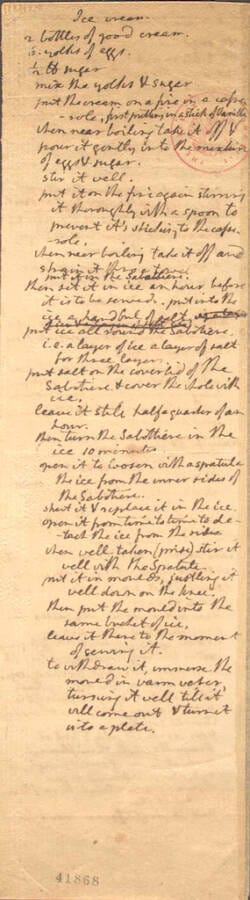 Ice cream.
2 bottles of good cream.
6. yolks of eggs.
1/2 lb sugar
mix the yolks & sugar
put the cream on a fire in a casse-
-role, first putting in a stick of Vanilla.
when near boiling take it off &
pour it gently into the mixture
of eggs & sugar.
stir it well.
put it on the fire again stirring
it thoroughly with a spoon to
prevent it's sticking to the casse-
-role.
when near boiling take it off and
strain it thro' a towel.
put it in the Sabottiere.
then set it in ice an hour before
it is to be served. put into the
ice a handful of salt.
put ice all round the Sabottiere.
i.e. a layer of ice a layer of salt
for three layers.
put salt on the coverlid of the
Sabotiere & cover the whole with
ice.
leave it still half a quarter of an
hour.
then turn the Sabottiere in the
ice 10 minutes
open it to loosen with a spatula
the ice from the inner sides of
the Sabotiere.
shut it & replace it in the ice
open it from time to time to de-
-tach the ice from the sides
when well taken (prise) stir it
well with the Spatula.
put it in moulds, justling it
well down on the knee.
then put the mould into the
same bucket of ice.
leave it there to the moment
of serving it.
to withdraw it, immerse the
mould in warm water,
turning it well till it
will come out & turn it
into a plate.
41868